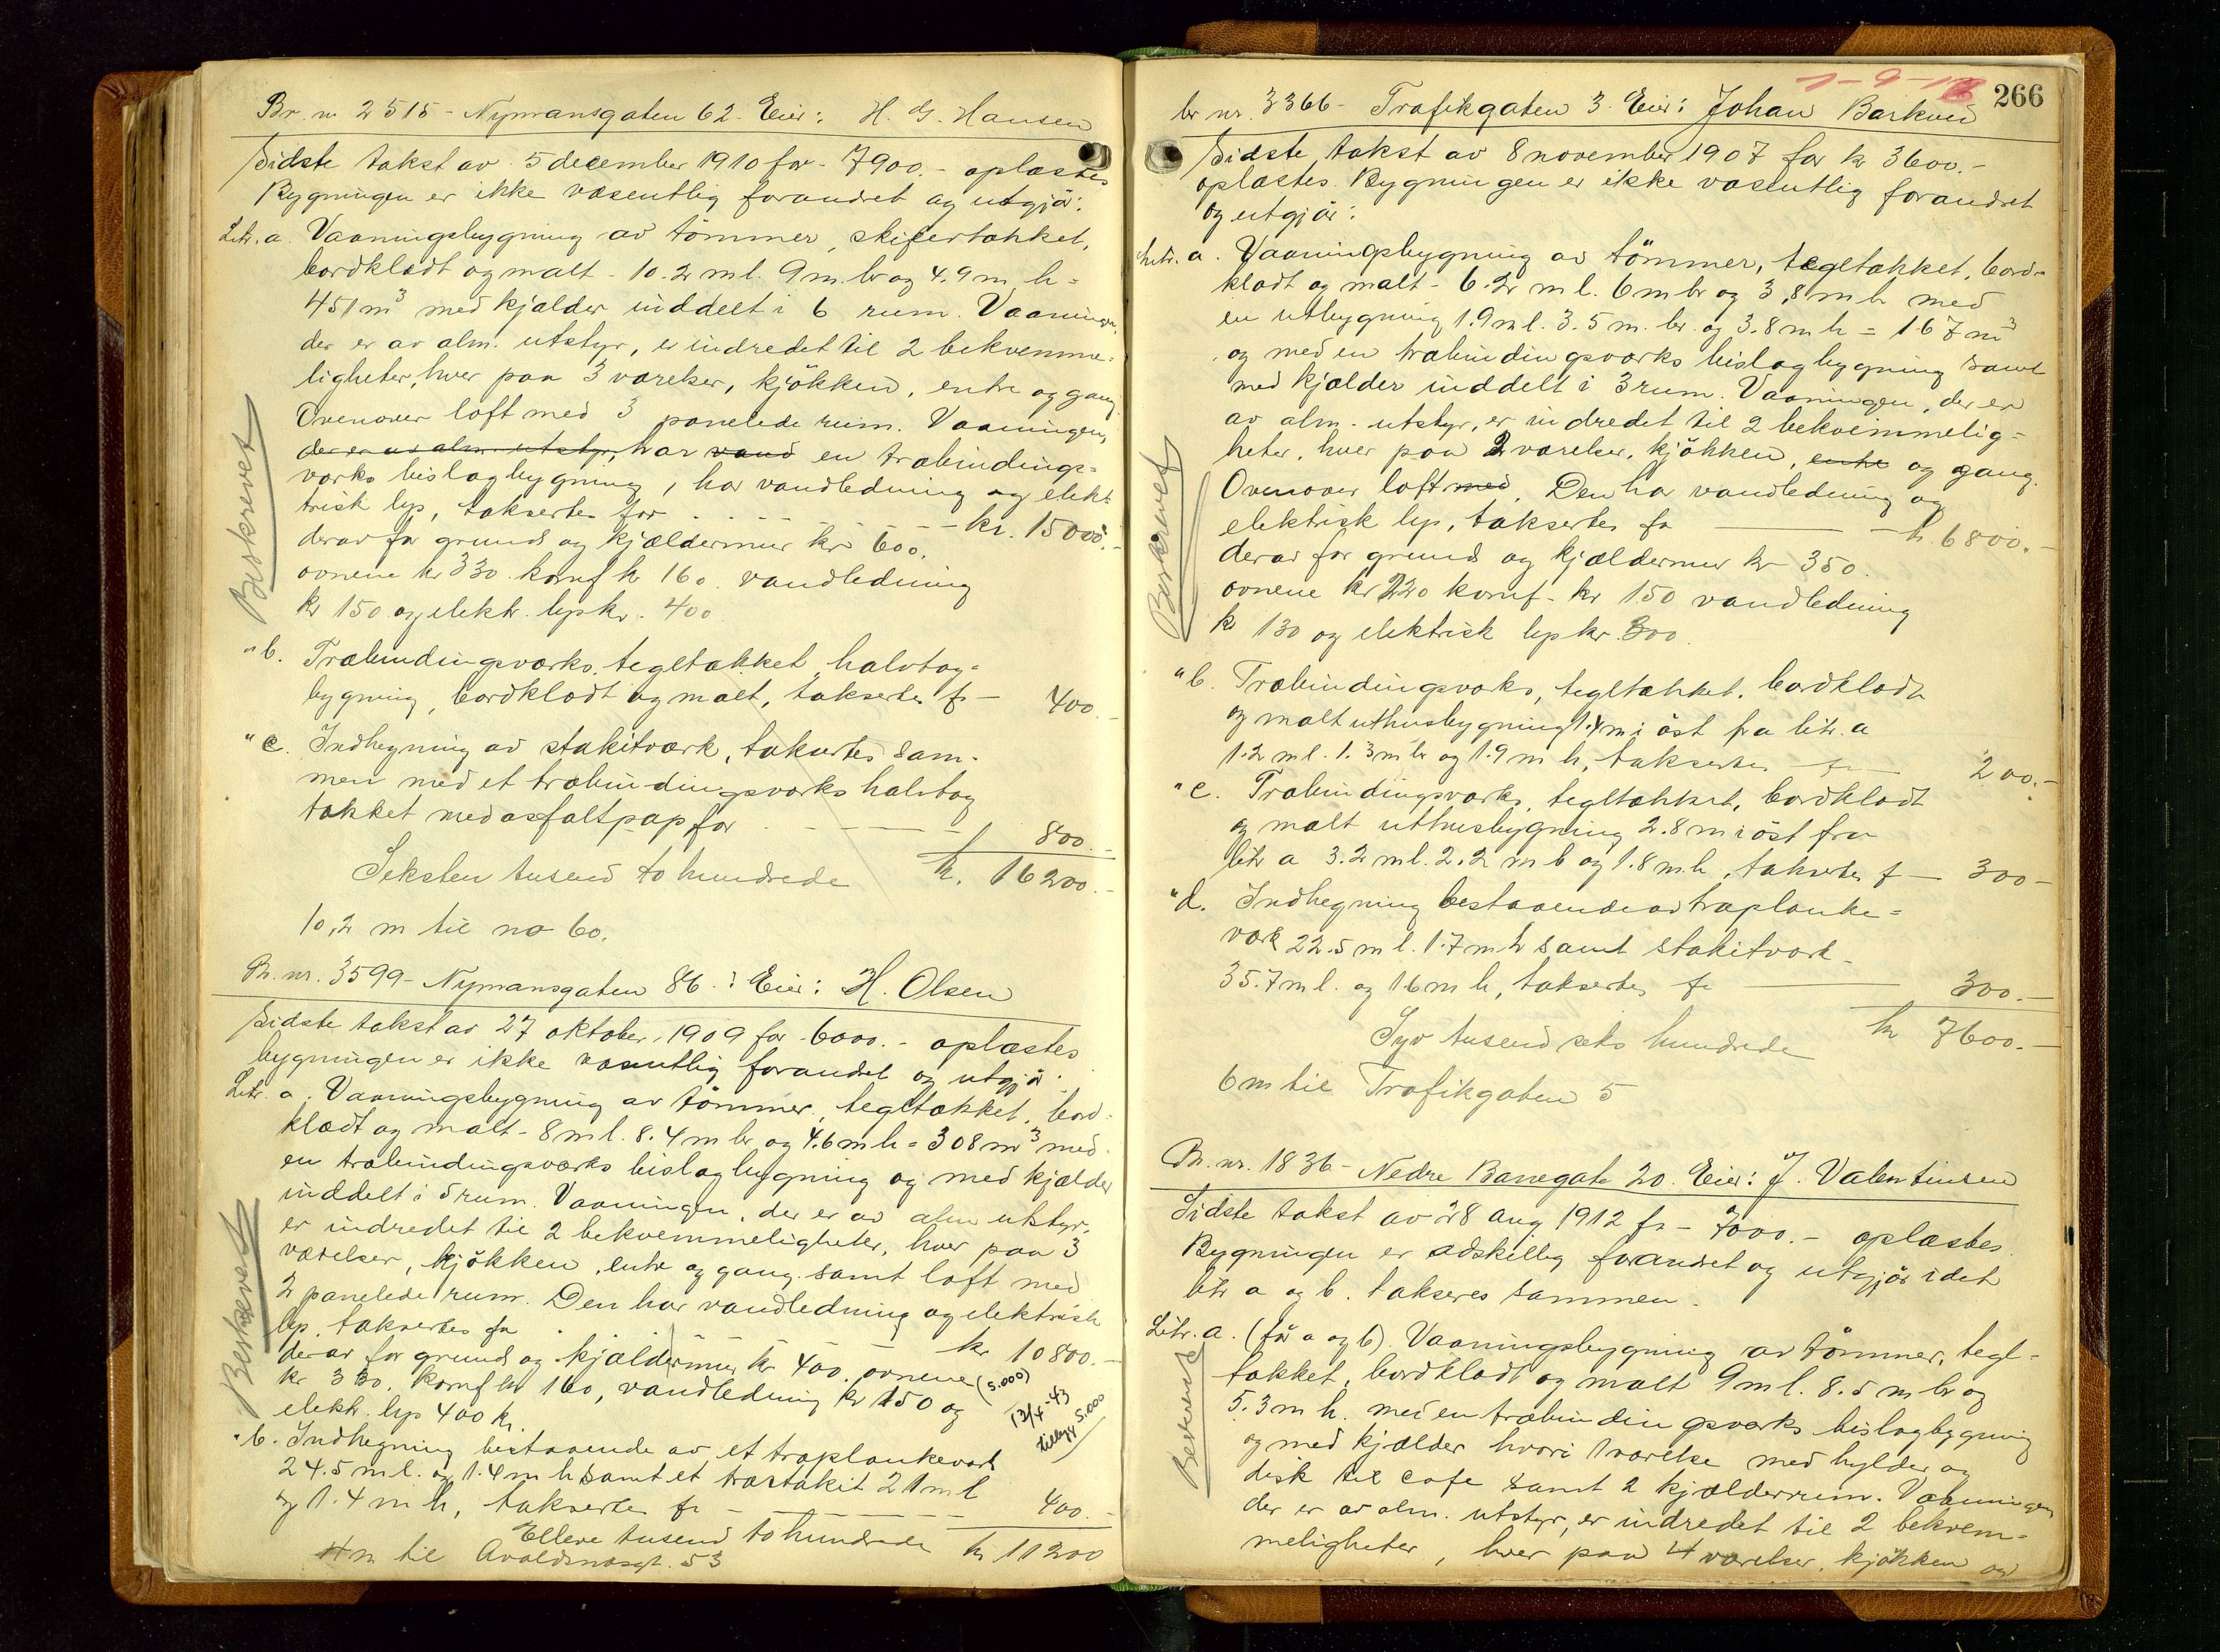 Br. nr 2515 - Nymansgaten 62. Eier: H. G. Hansen
Sidste takst av 5 december 1910 for - 7900.- oplæstes
Bygningen er ikke væsentlig forandret og utgjør:
Litr. a. Vaaningsbygning av tömmer, skifertækket,
bordklædt og malt - 10.2 m l. 9 m. br og 4.9 m h =
451 m³ med kjælder inddelt i 6 rum. Vaaningen,
der er av alm. utstyr, er indredet til 2 bekvemme-
ligheter, hver paa 3 værelser, kjökken, entre og gang
Ovenover loft med 3 panelede rum. Vaaningen,
der er av alm. utstyr, har vand en træbindings-
verks bislagbygning, har vandledning og elek-
trisk lys, takseres for - - - - kr. 15000.-
derav for grund og kjældermur kr 600.
ovnene kr 330. komf kr 160. vandledning
kr 150 og elektr. lys kr. 400
" b. Træbindingsverks, tegltækket, halvtag-
bygning, bordklædt og malt, takseres fr - 400.-
" c. Indhegning av stakitværk, takseres sam-
men med et træbindingsverks halvtag
tækket med asfaltpap for - - - 800.-
Seksten tusend to hundrede kr. 16200.-
10,2 m til no 60.
Br. nr. 3599 - Nymansgaten 86. Eier: H. Olsen
Sidste takst av 27 oktober 1909 for - 6000.- oplæstes
bygningen er ikke væsentlig forandret og utgjör:
Litr. a. Vaaningsbygning av tömmer, tegltækket, bord-
klædt og malt - 8 m l. 8.4 m br og 4.6 m h = 308 m³ med
en træbindingsværks bislagbygning og med kjælder
inddelt i 5 rum. Vaaningen, der er av alm utstyr,
er indredet til 2 bekvemmeligheter, hver paa 3
værelser, kjökken, entre og gang samt loft med
2 panelede rum. Den har vandledning og elektrisk
lys, takseres for kr 10800.-
derav for grund og kjældermur kr 400. ovnene (5.000)
kr 330, komf kr 160, vandledning kr 150 og
elektr. lys 400 kr.
13/4-43
tillegg 5.000
" b. Indhegning bestaaende av et træplankeverk
24.5 m l. og 1.4 m h samt et træstakit 21 m l
og 1.4 m h, takseres fr - - - - 400.-
Elleve tusend to hundrede kr 11200
4 m til Avaldsnesgt. 53
Beskrevet
Beskrevet
1-9-16
266
br nr. 3366 - Trafikgaten 3. Eier: Johan Barkved
Sidste takst av 8 november 1907 for kr 3600.-
oplæstes. Bygningen er ikke væsentlig forandret
og utgjör:
Litr. a. Vaaningsbygning av tömmer, tegltækket, bord-
klædt og malt - 6.2 m l. 6 m br og 3,8 m h med
en utbygning 1.9 m l. 3.5 m. br. og 3.8 m h = 167 m³
og med en træbindingsværks bislagbygning samt
med kjælder inddelt i 3 rum. Vaaningen, der er
av alm. utstyr, er indredet til 2 bekvemmelig-
heter, hver paa 2 værelser, kjökken, entre og gang.
Ovenover loft med. Den har vandledning og
elektrisk lys, takseres fr - kr. 6800.-
derav for grund og kjældermur kr 350.
ovnene kr 220 komf - kr 150 vandledning
kr 130 og elektrisk lys kr. 300.
" b. Træbindingsverks, tegltækket, bordklædt
og malt uthusbygning 1.4 m i öst fra litr. a
1.2 m l. 1.3 m br og 1.9 m h, takseres fr - 200.-
" c. Træbindingsværks, tegltækket, bordklædt
og malt uthusbygning 2.8 m i öst fra
litr a 3.2 m l. 2.2 m b og 1.8 m h, takseres f - 300 -
" d. Indhegning bestaaende av træplanke-
værk 22.5 m l. 1.7 m h samt stakitværk -
35.7 m l. og 16 m h, takseres fr - 300.-
Syv tusend seks hundrede kr 7600.-
6 m til Trafikgaten 5
Br. nr. 1836 - Nedre Banegate 20. Eier: J. Valentinsen
Sidste takst av 28 aug 1912 fr - 7000.- oplæstes.
Bygningen er adskillig forandret og utgjör idet
litr a og b. takseres sammen.
Litr. a. (för a og b). Vaaningsbygning av tömmer, tegl-
tækket, bordklædt og malt 9 m l. 8.5 m br og
5.3 m h. med en træbindingsværks bislagbygning
og med kjælder hvori 1 værelse med hylder og
disk til cafe samt 2 kjælderrum. Vaaningen
der er av alm. utstyr, er indredet til 2 bekvem-
meligheter, hver paa 4 værelser, kjökken og
Beskrevet
Beskrevet